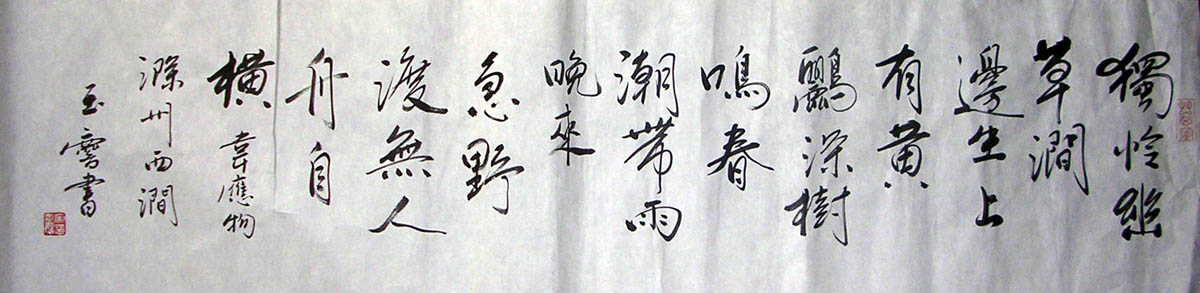 獨怜幽
草澗
邊生上
有黄
鸝深樹
鳴春
潮帶雨
晚來
急野
渡無人
舟自
横 韋應物
滁州西澗
玉書